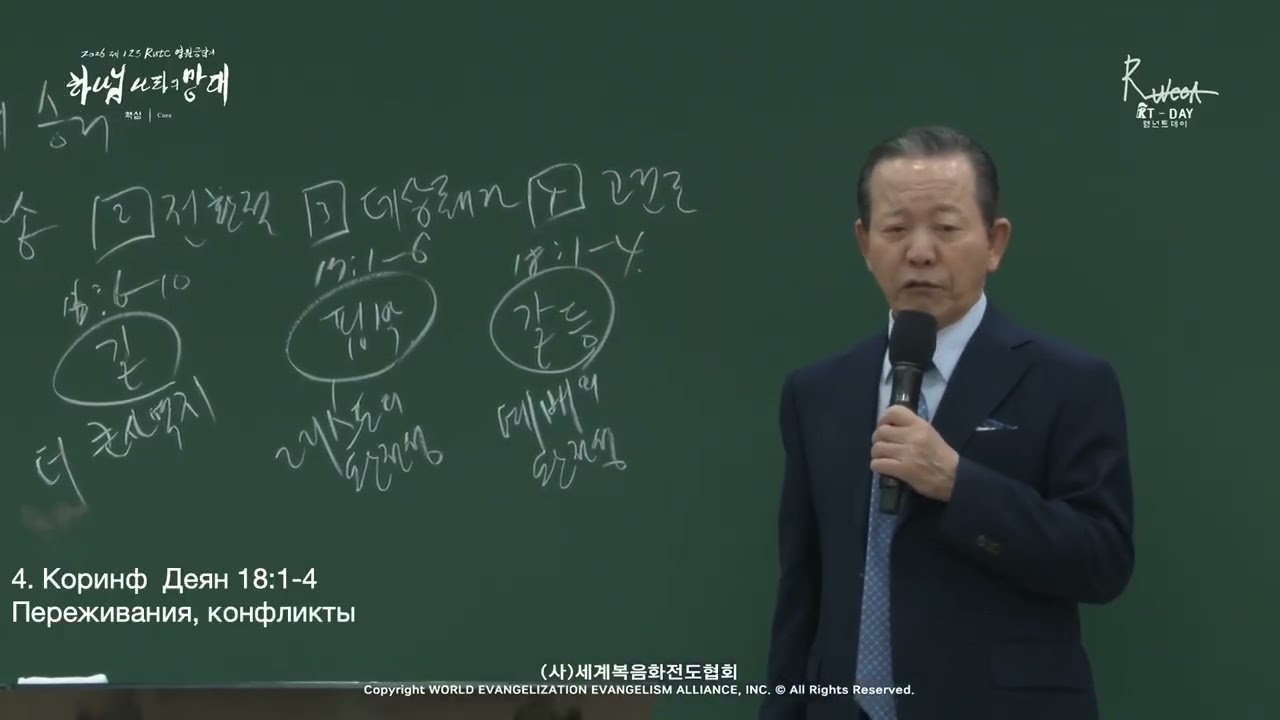 2026 제 123 RUTC 영원응답
하나님 나라와 망대
핵심 | Core
R WEEK
RT - DAY
렘넌트데이
2 전환점 3 데살로니가 4 고린도
16:6-10
17:1-6
18:1-4
길
핍박
갈등
더
그리스도의
완전성
예배의
완전성
4. Коринф Деян 18:1-4
Переживания, конфликты
(사)세계복음화전도협회
Copyright WORLD EVANGELIZATION EVANGELISM ALLIANCE, INC. © All Rights Reserved.